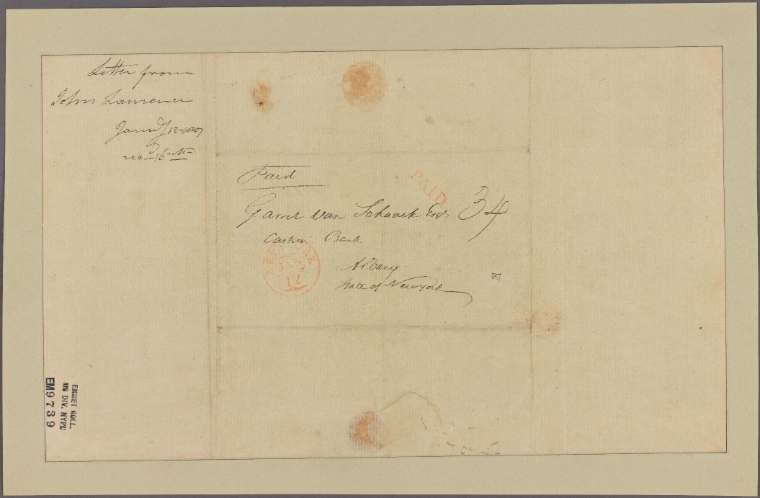 Letter from
John Lawrence
Jany 12 1807
Paid
PAID
Garret van Schaack Esqr 34
Cashier Bank
Albany
State of New york
NEW YORK
JAN
12
EMMET COLL.
MS DIV. NYPL
EM9739